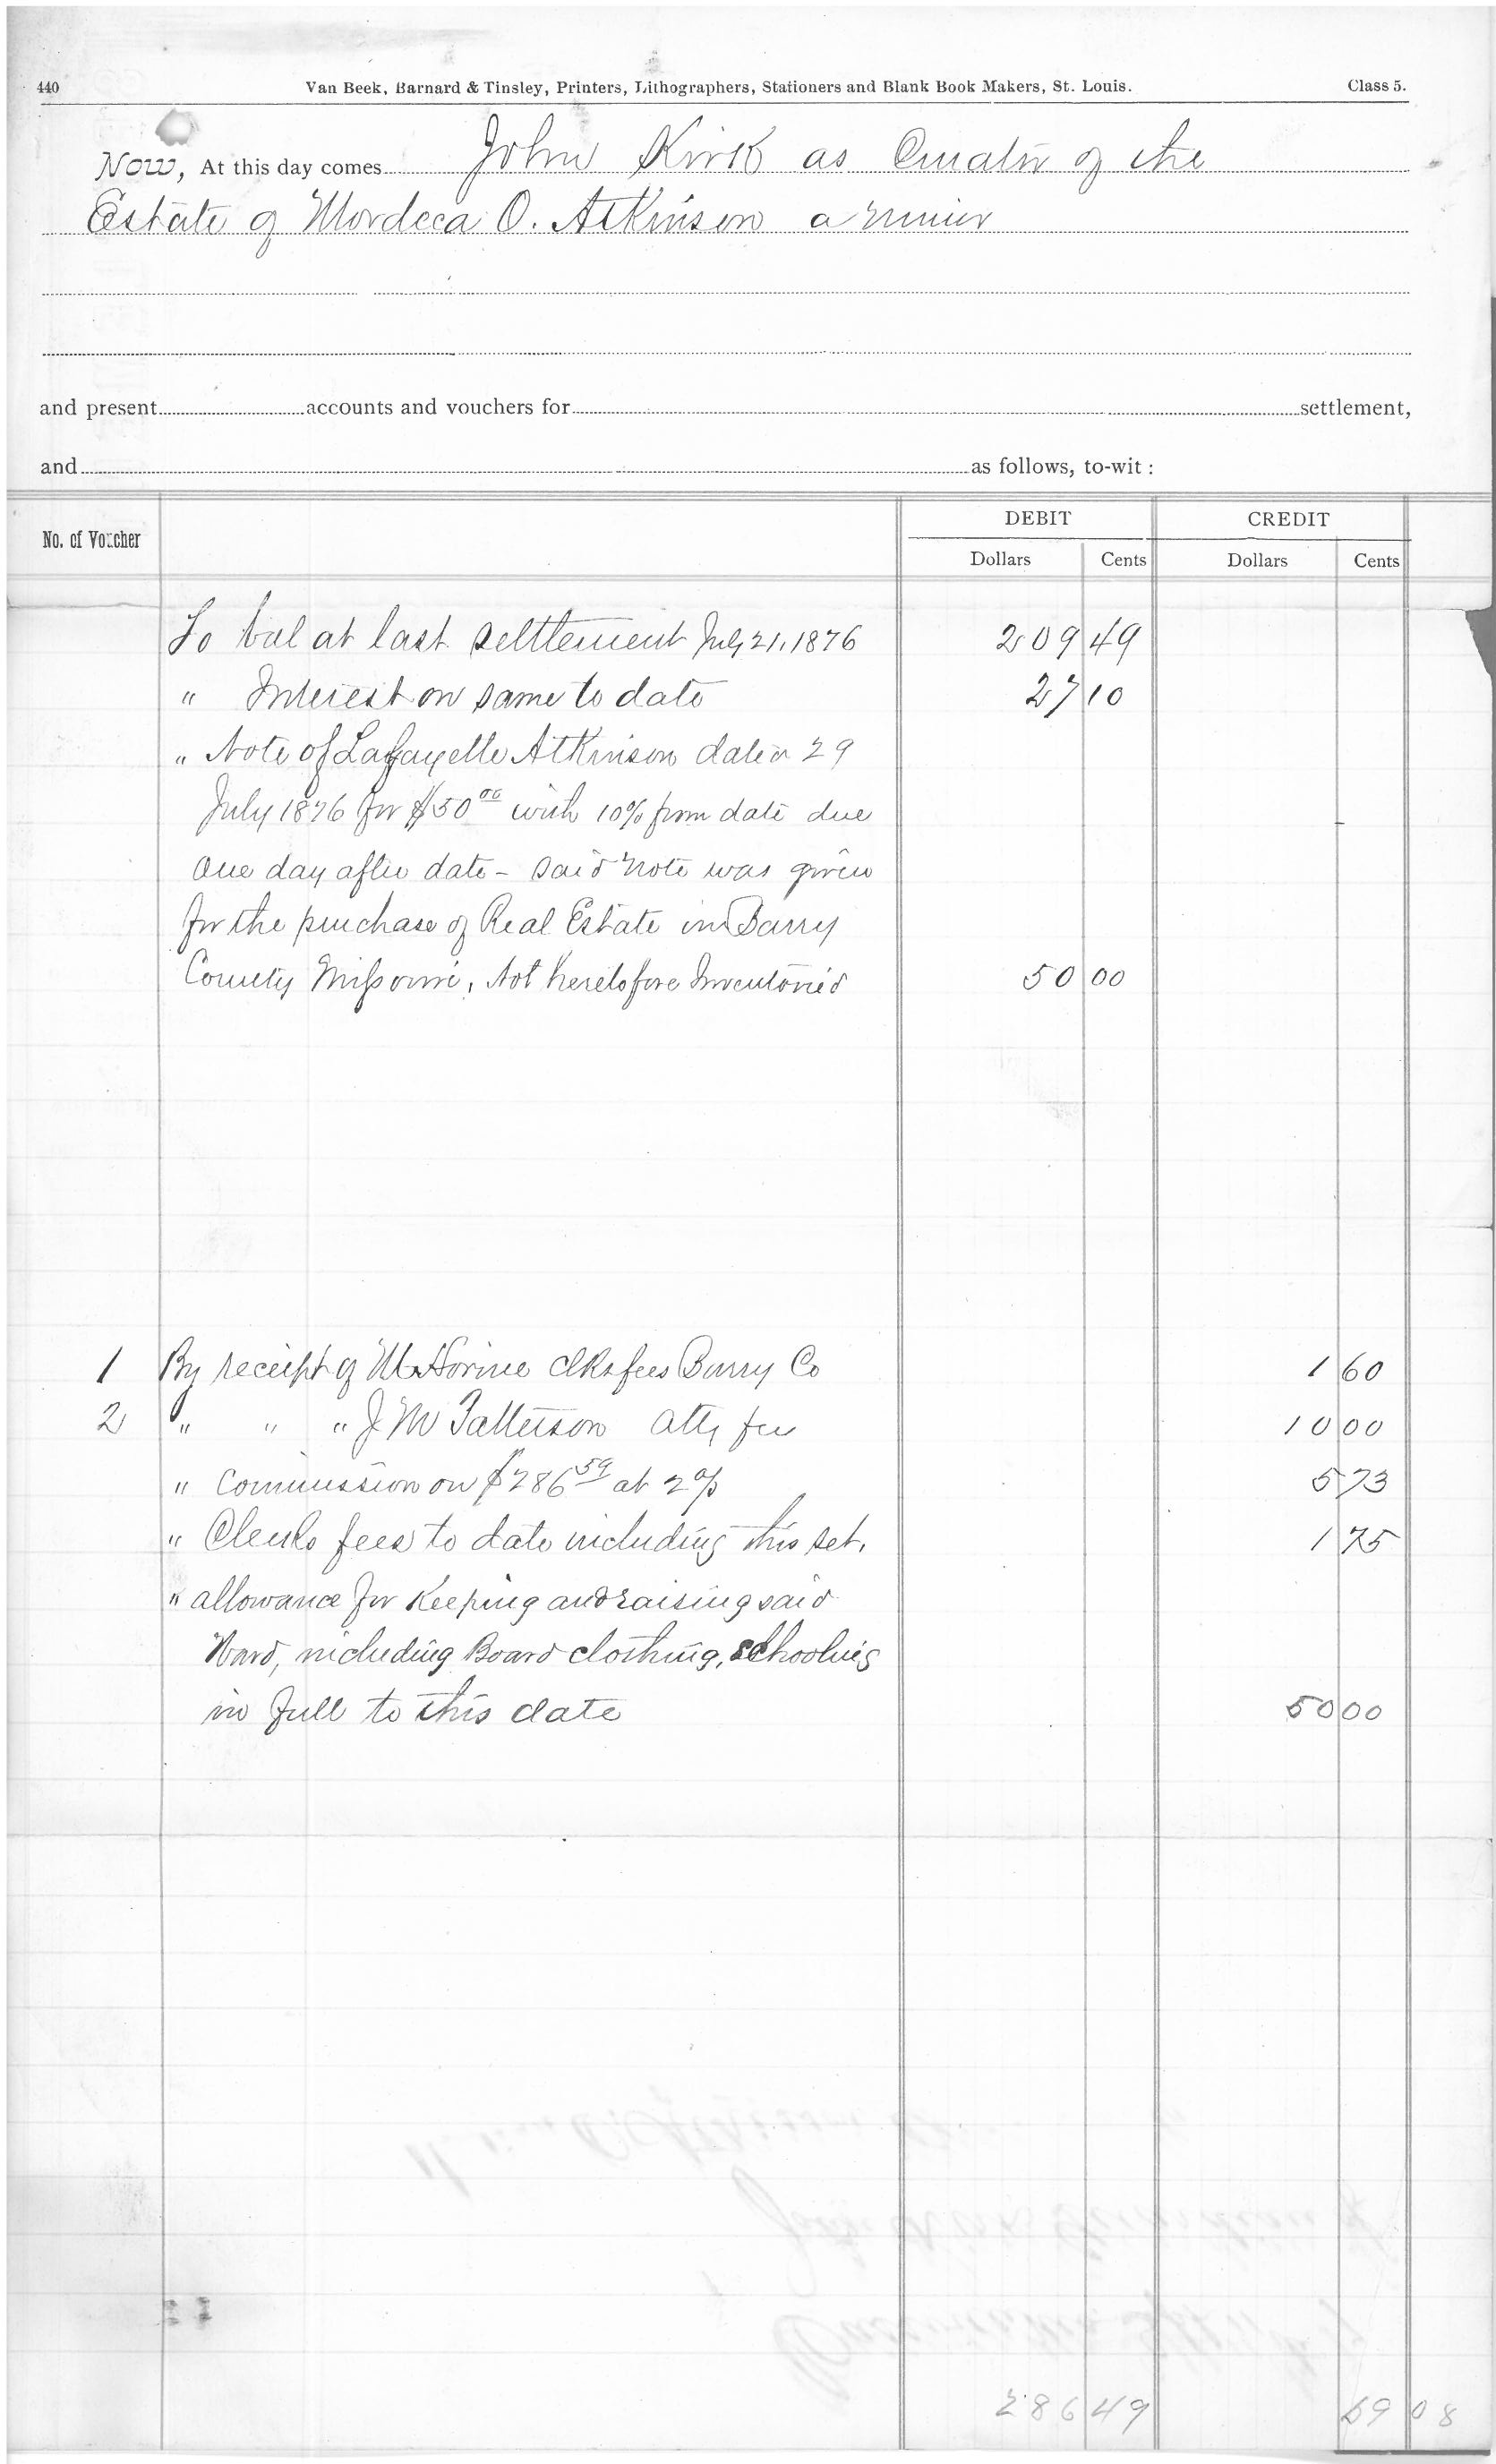 440 Van Beek, Barnard & Tinsley, Printers, Lithographers, Stationers and Blank Book Makers, St. Louis. Class 5.
Now, At this day comes John Kirk as Curator of the
Estate of Mordeca O. Atkinson a minor
and present accounts and vouchers for settlement,
and as follows, to-wit:
No. of Voucher DEBIT CREDIT
Dollars Cents Dollars Cents
To bal at last settlement July 21, 1876 209 49
" Interest on same to date 27 10
" Note of Lafayette Atkinson dated 29
July 1876 for $50 00 with 10% from date due
one day after date - said note was given
for the purchase of Real Estate in Barry
County Missouri, Not heretofore Inventoried 50 00
1 By receipt of Horine clks fees Barry Co 1 60
2 " " " J M Patterson atty fee 10 00
" Commission on $286 59 at 2% 5 73
" Clerks fees to date including this set. 1 75
" allowance for keeping and raising said
Ward, including Board clothing, schooling
in full to this date 50 00
286 49 69 08